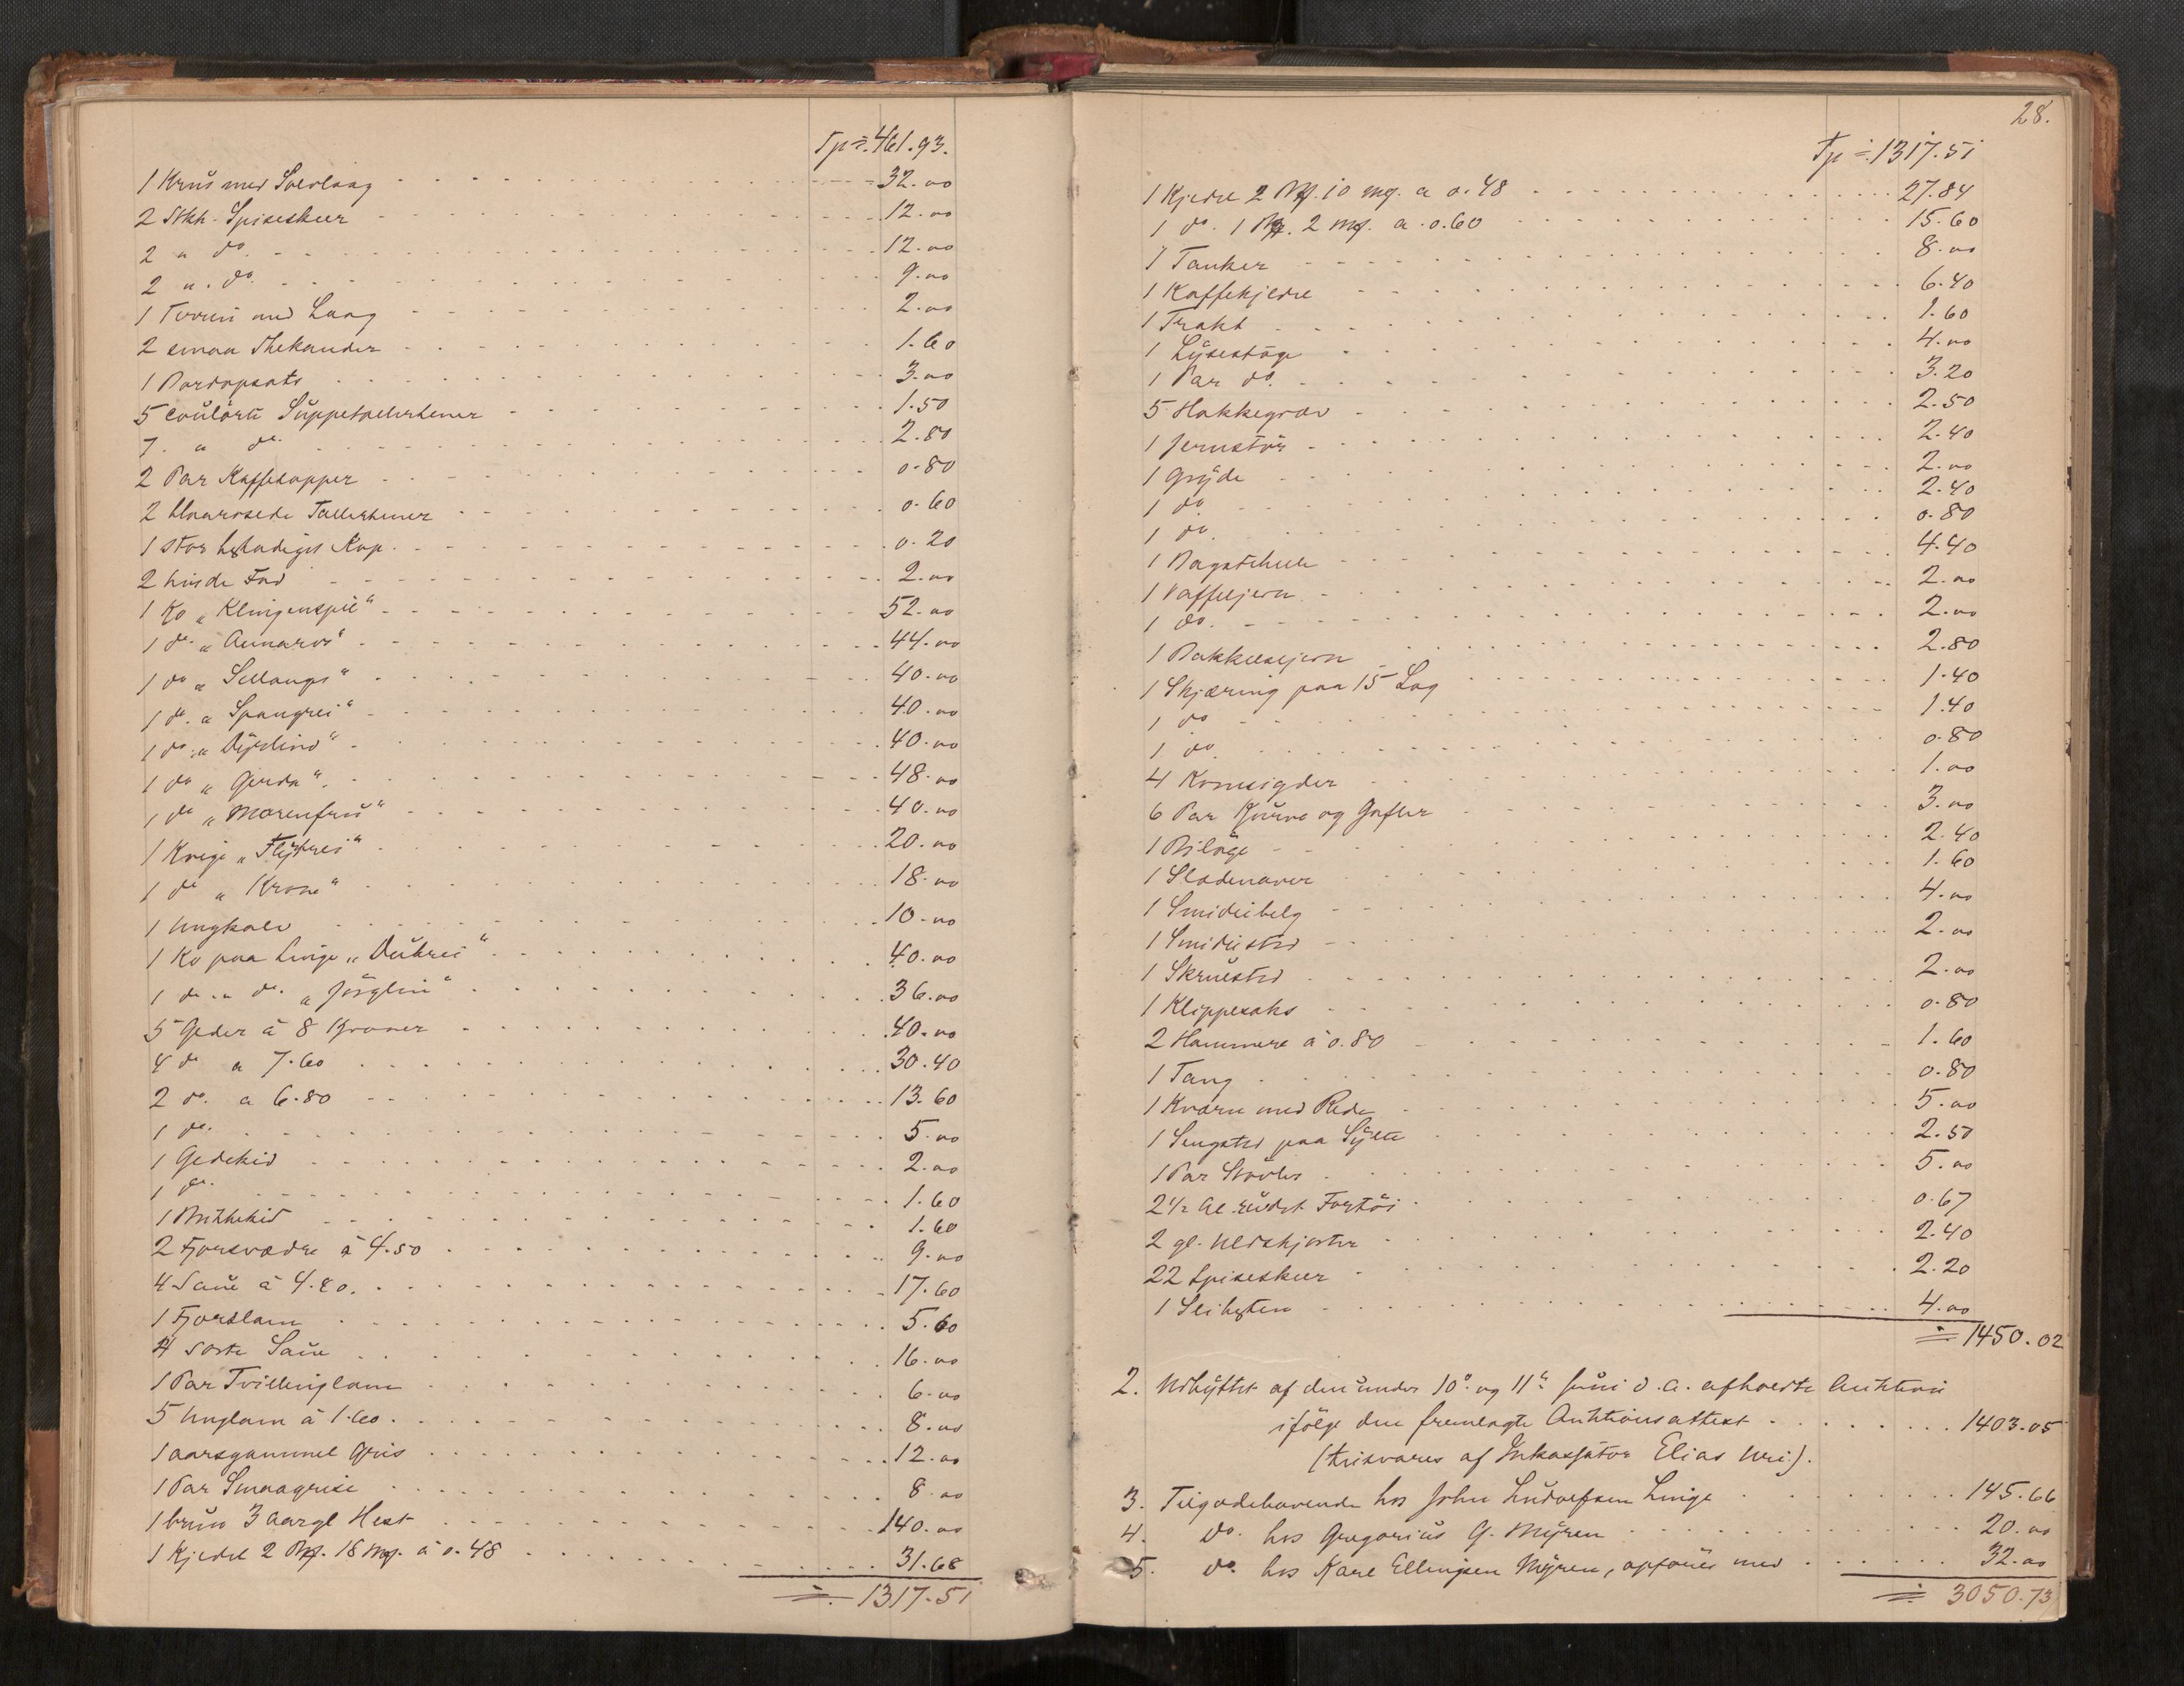 Tp =. 461.93.
1 Krus med Sølvlaag 32.00
2 Stkk. Spiseskeer 12.00
2 " do. 12.00
2 ". do. 9.00
1 Terrin med Laag 2.00
2 smaa Thekander 1.60
1 Bordopsats 3.00
5 coulörte Suppetallerkener 1.50
7. " do. 2.80
2 Par Kaffekopper 0.80
2 blaarosede Tallerkener 0.60
1 stor beskadiget Kop. 0.20
2 hvide Fad 2.00
1 Ko „Klingenspil“ 52.00
1 do. „Annaros“ 44.00
1 do „Sellaug“ 40.00
1 do. „Spangrei“ 40.00
1 do. „Dyrlind“ 40.00
1 do „Gerda“. 48.00
1 do „Morenfru“ 40.00
1 Kvige 20.00
1 do „Krone“ 18.00
1 Ungkalv 10.00
1 Ko paa Linge „Dubrei“ 40.00
1 do.. do. 36.00
5 Geder à 8 Kroner 40.00
4 do a 7.60 30.40
2 do. a 6.80 13.60
1 do. 5.00
1 Gedekid 2.00
1 do. 1.60
1 Bukkekid 1.60
2 Fjorsvædre à 4.50 9.00
4 Saue à 4.80. 17.60
1 Fjorslam 5.60
4 sorte Saue 16.00
1 Par Tvillinglam 6.00
5 Unglam à 1.60. 8.00
1 aarsgammel Gris 12.00
1 Par Smaagrise 8.00
1 brun 3 aargl Hest 140.00
1 Kjedel 2 Bpd. 18 Mk. à 0.48 31.68
=. 1317.51
28.
Tp =. 1317.51
1 Kjedel 2 Bpd. 10 mk. a 0.48 27.84
1 do. 1 Bpd. 2 mk. a 0.60 15.60
1 Tanker 8.00
1 Kaffekjedel 6.40
1 Trakt 1.60
1 Lysestage 4.00
1 Par do. 3.20
5 Hakkegrev 2.50
1 Jernstör 2.40
1 Gryde 2.00
1 do 2.40
1 do. 0.80
1 Bagstehelle 4.40
1 Vaffeljern 2.00
1 do. 2.00
1 Bakkelsejern 2.80
1 Skjæring paa 15 Lag 1.40
1 do 1.40
1 do 0.80
4 Kornsigder 1.00
6 Par Knive og Gafler 3.00
1 Biløge 2.40
1 Sladenaver 1.60
1 Smidiebelg 4.00
1 Smidiested 2.00
1 Skruested 2.00
1 Klippesaks 0.80
2 Hammere à 0.80 1.60
1 Tang 0.80
1 Kværn med Rede 5.00
1 Sengsted paa Sylte 2.50
1 Par Støvler 5.00
2 1/2 Al. Fortöi 0.67
2 gl. Uldskjorter 2.40
22 Spiseskeer 2.20
1 Slibesten 4.00
=. 1450.02
2. Udbyttet af den under 10de og 11te Juni d. A. afholdte Auktion
ifölge den fremlagte Auktionsattest 1403.05
(tilsvares af Inkassator Elias Uri).
3. Tilgodehavende hos John Ludvigsen Linge 145.66
4. do. hos Gregorius G. Myren 20.00
5. do. hos Karl Ellingsen Myren, opföres med 32.00
=. 3050.73